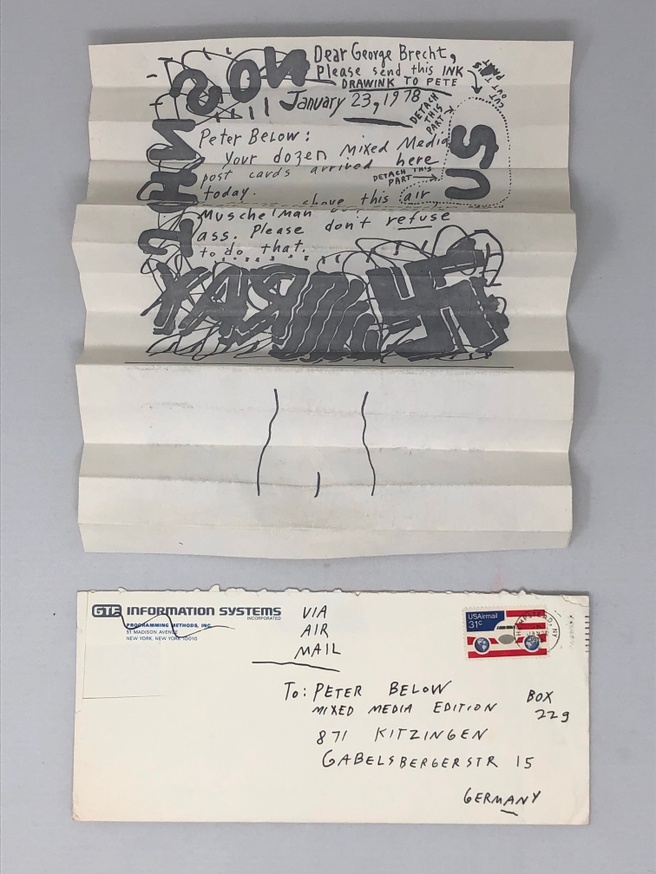 Dear George Brecht,
Please send this INK
DRAWINK TO PETE
January 23, 1978
CUT OUT
PART
DETACH
THIS
PART
US
Peter Below:
Your dozen mixed Media
post cards arrived here
today.
shove this air
DETACH THIS
PART
Muschelman
ass. Please don't refuse
to do that.
GTE INFORMATION SYSTEMS
INCORPORATED
PROGRAMMING METHODS, INC.
51 MADISON AVENUE
NEW YORK, NEW YORK 10010
VIA
AIR
MAIL
USAirmail
31c
To: PETER BELOW
MIXED MEDIA EDITION
BOX
229
871 KITZINGEN
GABELSBERGERSTR 15
GERMANY